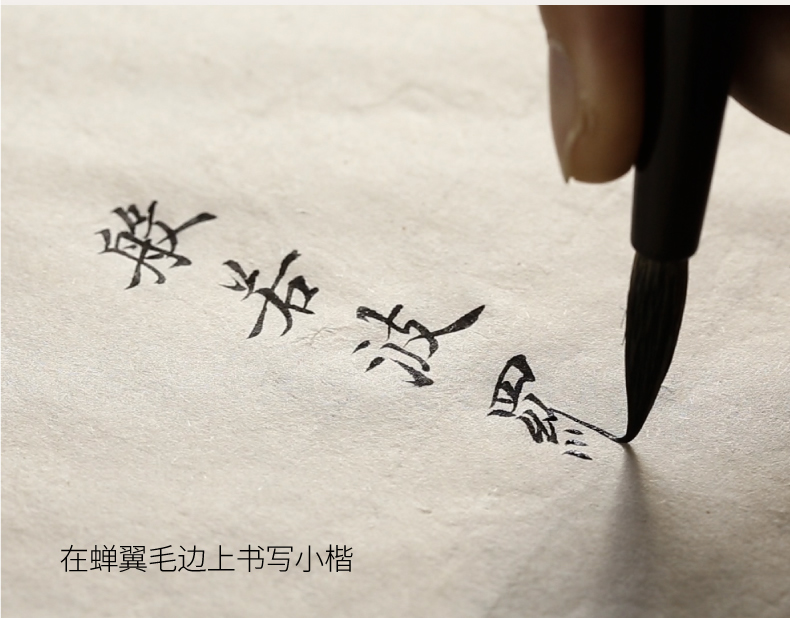 般若波羅
在蝉翼毛边上书写小楷